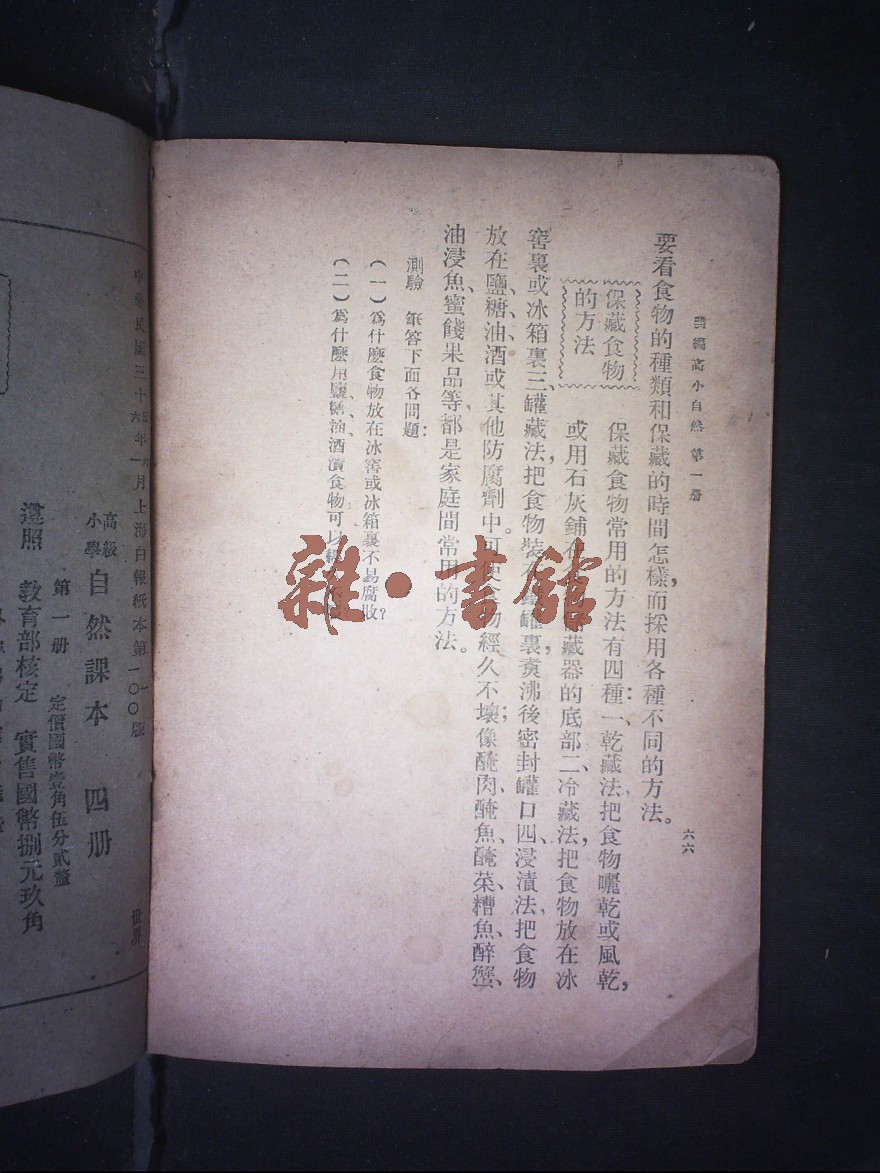 高小自然 第一册
六六
要看食物的種類和保藏的時間怎樣，而採用各種不同的方法。
保藏食物
的方法
保藏食物常用的方法有四種：一、乾藏法，把食物曬乾或風乾，
或用石灰鋪在藏器的底部二、冷藏法，把食物放在冰
窖裏或冰箱裏三、罐藏法，把食物裝在罐裏，煑沸後密封罐口四、浸漬法，把食物
放在鹽、糖、油、酒或其他防腐劑中。可使食物經久不壞；像醃肉、醃魚、醃菜、糟魚、醉蟹、
油浸魚、蜜餞果品等都是家庭間常用的方法。
測驗 筆答下面各問題：
（一）爲什麽食物放在冰窖或冰箱裏不易腐敗？
（二）爲什麽用鹽、糖、油、酒漬食物可以
雜·書館
中華民國三十年一月上海白報紙本第一〇〇版
高級
小學
自然課本 四册
第一册 定價國幣壹角伍分貳釐
遵照 教育部核定 實售國幣捌元玖角
世界